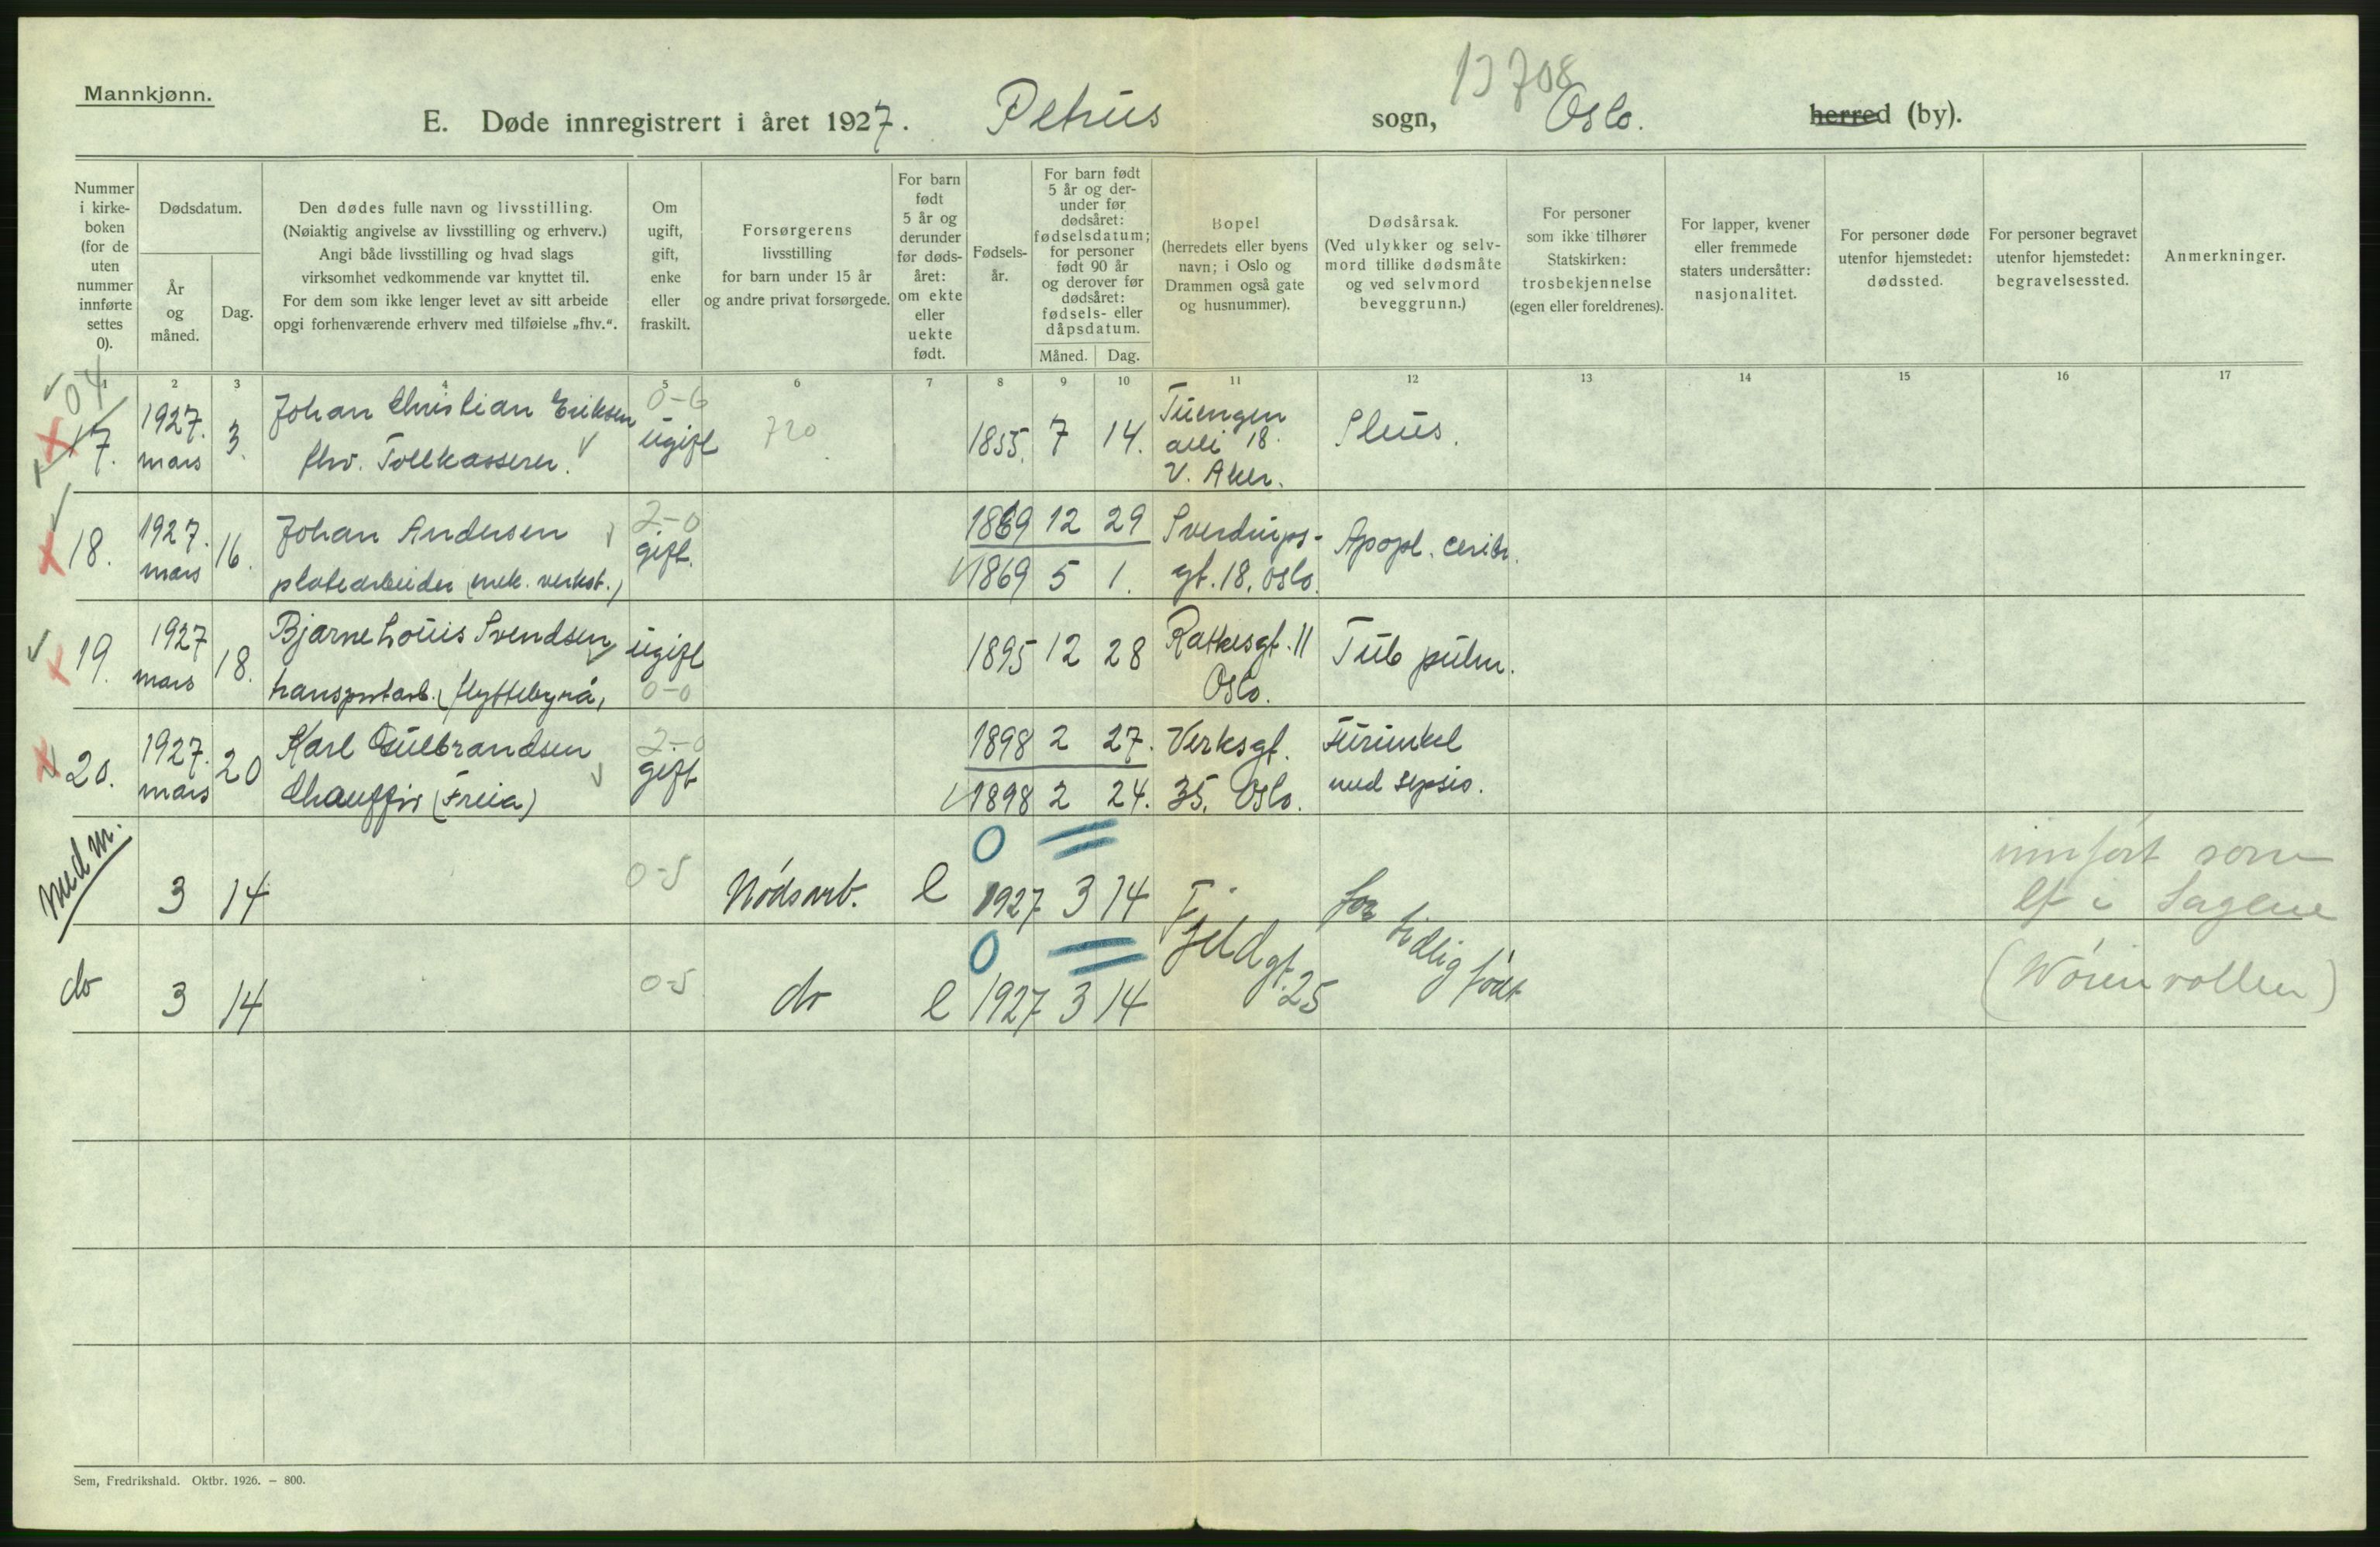 13708
Mannkjønn.
E. Døde innregistrert i året 1927. Petrus sogn, Oslo. herred (by).
Nummer i kirke-boken (for de uten nummer innførte settes 0).
Dødsdatum.
År og måned.
Dag.
Den dødes fulle navn og livsstilling.
(Nøiaktig angivelse av livsstilling og erhverv.)
Angi både livsstilling og hvad slags
virksomhet vedkommende var knyttet til.
For dem som ikke lenger levet av sitt arbeide
opgi forhenværende erhverv med tilføielse „fhv.“.
Om ugift, gift, enke eller fraskilt.
Forsørgerens
livsstilling
for barn under 15 år
og andre privat forsørgede.
For barn født 5 år og derunder før døds-året: om ekte eller uekte født.
Fødsels-år.
For barn født
5 år og der-
under før
dødsåret:
fødselsdatum;
for personer
født 90 år
og derover før
dødsåret:
fødsels- eller
dåpsdatum.
Måned. Dag.
Bopel
(herredets eller byens
navn; i Oslo og
Drammen også gate
og husnummer).
Dødsårsak.
(Ved ulykker og selv-
mord tillike dødsmåte
og ved selvmord
beveggrunn.)
For personer
som ikke tilhører
Statskirken:
trosbekjennelse
(egen eller foreldrenes).
For lapper, kvener
eller fremmede
staters undersåtter:
nasjonalitet.
For personer døde
utenfor hjemstedet:
dødssted.
For personer begravet
utenfor hjemstedet:
begravelsessted.
Anmerkninger.
1 2 3 4 5 6 7 8 9 10 11 12 13 14 15 16 17
04
17. 1927. mars 3. Johan Christian Eriksen fhv. Tollkasserer. 0-6 ugift 720 1855. 7 14. Tuengen alle 18. V. Aker. Ileus.
18. 1927. mars 16. Johan Andersen platearbeider (mek. verkst.) 2-0 gift. 1869 12 29 Sverdrups- Apopl. cerebr.
1869 5 1. gt. 18, Oslo.
19. 1927 mars 18. Bjarne Louis Svendsen transportarb. (flyttebyrå, ugift 0-0 1895 12 28 Rathkesgt. 11 Oslo. Tub pulm.
20. 1927. mars 20 Karl Gulbrandsen Chauffør (Freia) 2-0 gift 1898 2 27. Verksgt. Furunkel
1898 2 24. 35. Oslo. med sepsis.
med m. 3 14 0-5 Nødsarb. e 0 1927 3 14 Fjeldgt. 25 for tidlig født innført som lf i Sagene
do 3 14 0-5 do e 0 1927 3 14 (Wøienvollen)
Sem, Fredrikshald. Oktbr. 1926. — 800.